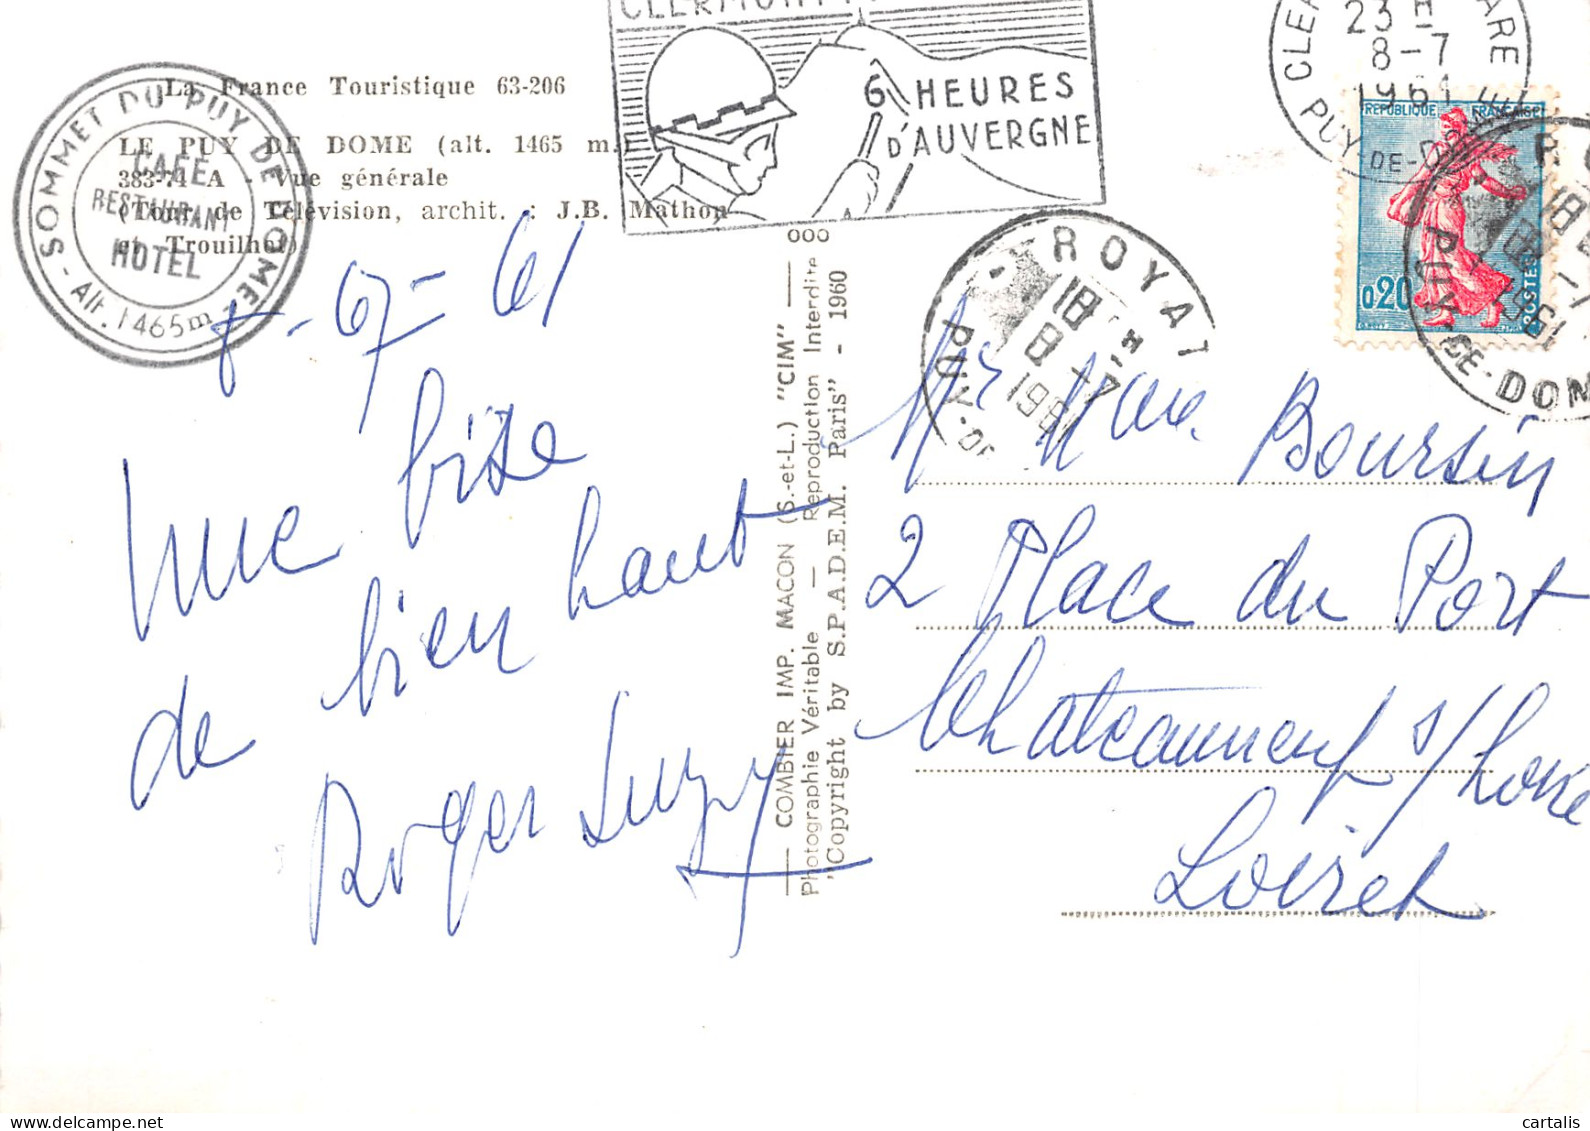 La France Touristique 63-206
LE PUY DE DOME (alt. 1465 m.)
383-71 A - Vue générale
(Tour de Télévision, archit. : J.B. Mathon
et Trouilhot)
SOMMET DU PUY DE DOME
- Alt. 1465m -
CAFE
RESTAURANT
HOTEL
6 HEURES
D'AUVERGNE
23 H
8-7
1961
PUY-DE-DOME
REPUBLIQUE FRANÇAISE
0,20
POSTES
ROYAT
18 H
8-7
1961
PUY-DE-DOME
ROYAT
18 H
8-7
1961
PUY-DE
8-07-61
Une bise
de bien haut
Roger Suzy
COMBIER IMP. MACON (S.-et-L.) "CIM"
Photographie Véritable — Reproduction Interdite
"Copyright by S.P.A.D.E.M. Paris" - 1960
Mr Mme Boursin
2 Place du Port
Chateauneuf s/Loire
Loiret
cartalis.com